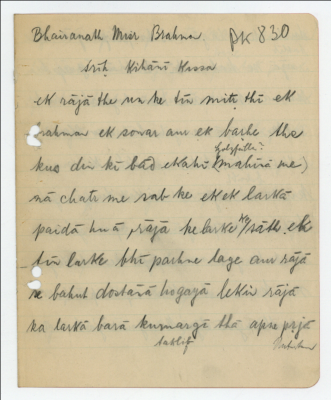 Bhairanath Misr Brahman. PK 830
Srih Kihānī Kissa
ek rājā the un ke tin mitr thī ek
brahman ek sonar aur ek barhe tha
kuc din kī bād ekahī mahinā me
nā chatr me sab ke ek ek larkā
paidā huā, rājā ke larke ke sāth. ek
tīn larke bhī parhne lage aur rājā
se bahut dostānā hogayā lekin rājā
ka larkā barā kumargī thā apne
taklif